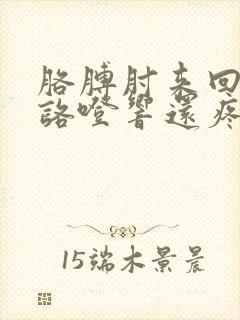 胳膊肘来回
詻噔響還疼
15端木景晨